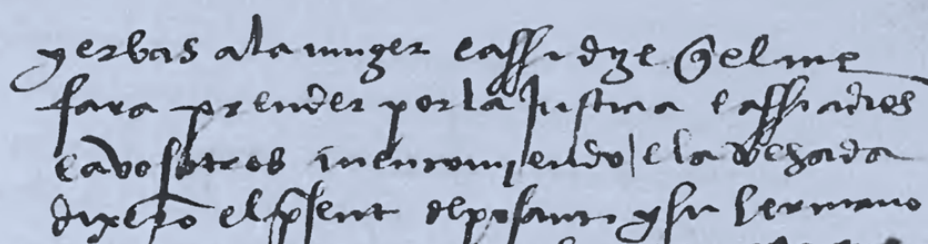 yerbas a la muger e assi dize q̃ el me
fara prender por la Justicia e assi a dios
e a vosotros m encomiendo e la vegada
dixerõ el p̃sent deposant y su hermano